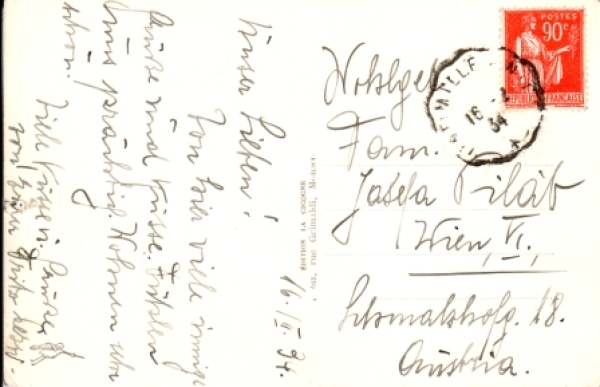 16. II 34.
Unser Lieben!
Von hier viele innige
Grüße und Küsse. Fühlen
uns prächtig. Wohnen sehr
schön.
Viele Küsse u. Grüße
von
ÉDITION LA CIGOGNE
rue Grimaldi, Monaco
POSTES
90c
RÉPUBLIQUE FRANÇAISE
16 - 2
34
Wohlgeb
Fam.
Josefa Piláb
Wien, VI.,
Schmalzhofg. 18.
Austria.